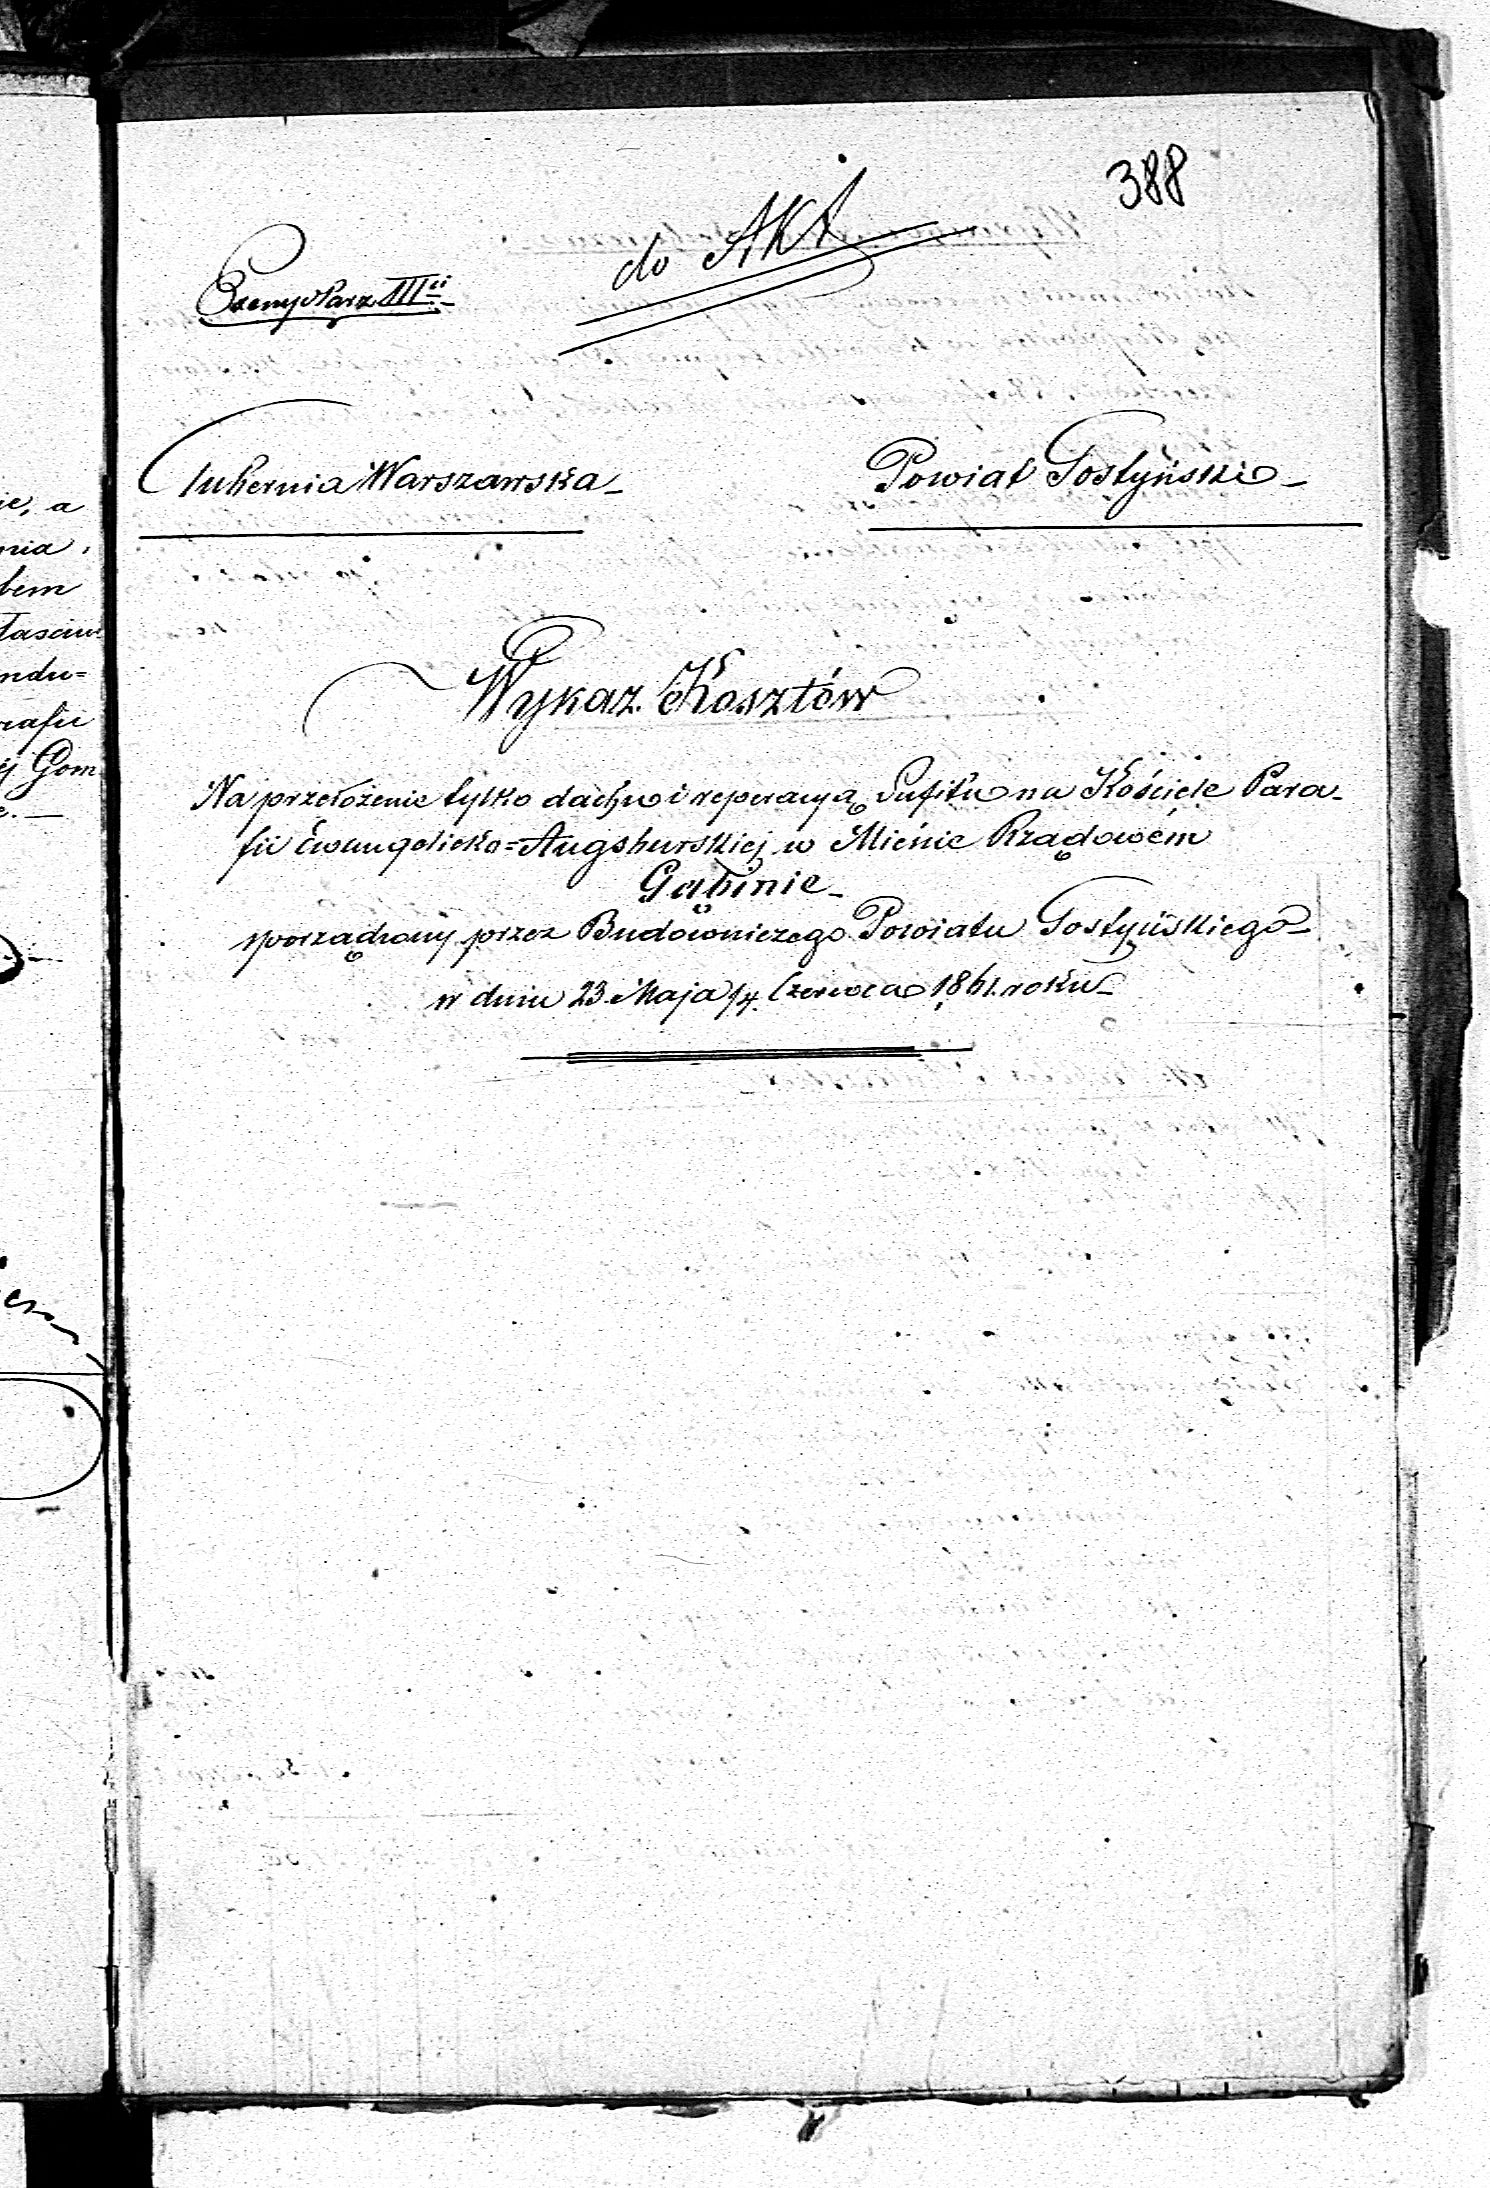 388
do Akt
Exemplarz III<sup>ci</sup>
Gubernia Warszawska
Powiat Gostyński
Wykaz Kosztów
Na przełożenie tylko dachu i reperacyą Sufitu na Kościele Para-
fii Ewangelicko=Augsburskiej w Mieście Rządowém
Gąbinie
sporządzony przez Budowniczego Powiatu Gostyńskiego
w dniu 23 Maja/4 Czerwca 1861 roku
ie, a
nia,
bem
ndu=
rafii
ej Gom